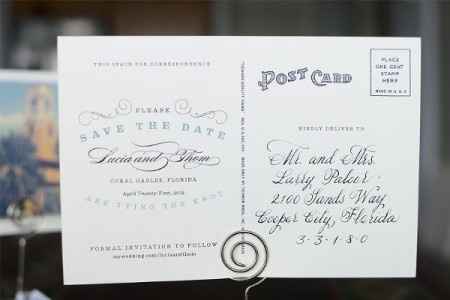 THIS SPACE FOR CORRESPONDENCE
PLEASE
SAVE THE DATE
Lucia and Thom
CORAL GABLES, FLORIDA
April Twenty-First, 2012
ARE TYING THE KNOT
FORMAL INVITATION TO FOLLOW
POST CARD
PLACE
ONE CENT
STAMP
HERE
KINDLY DELIVER TO
Mr. and Mrs.
Larry Palcer
2100 Sands Way
Cooper City, Florida
3·3·1·8·0